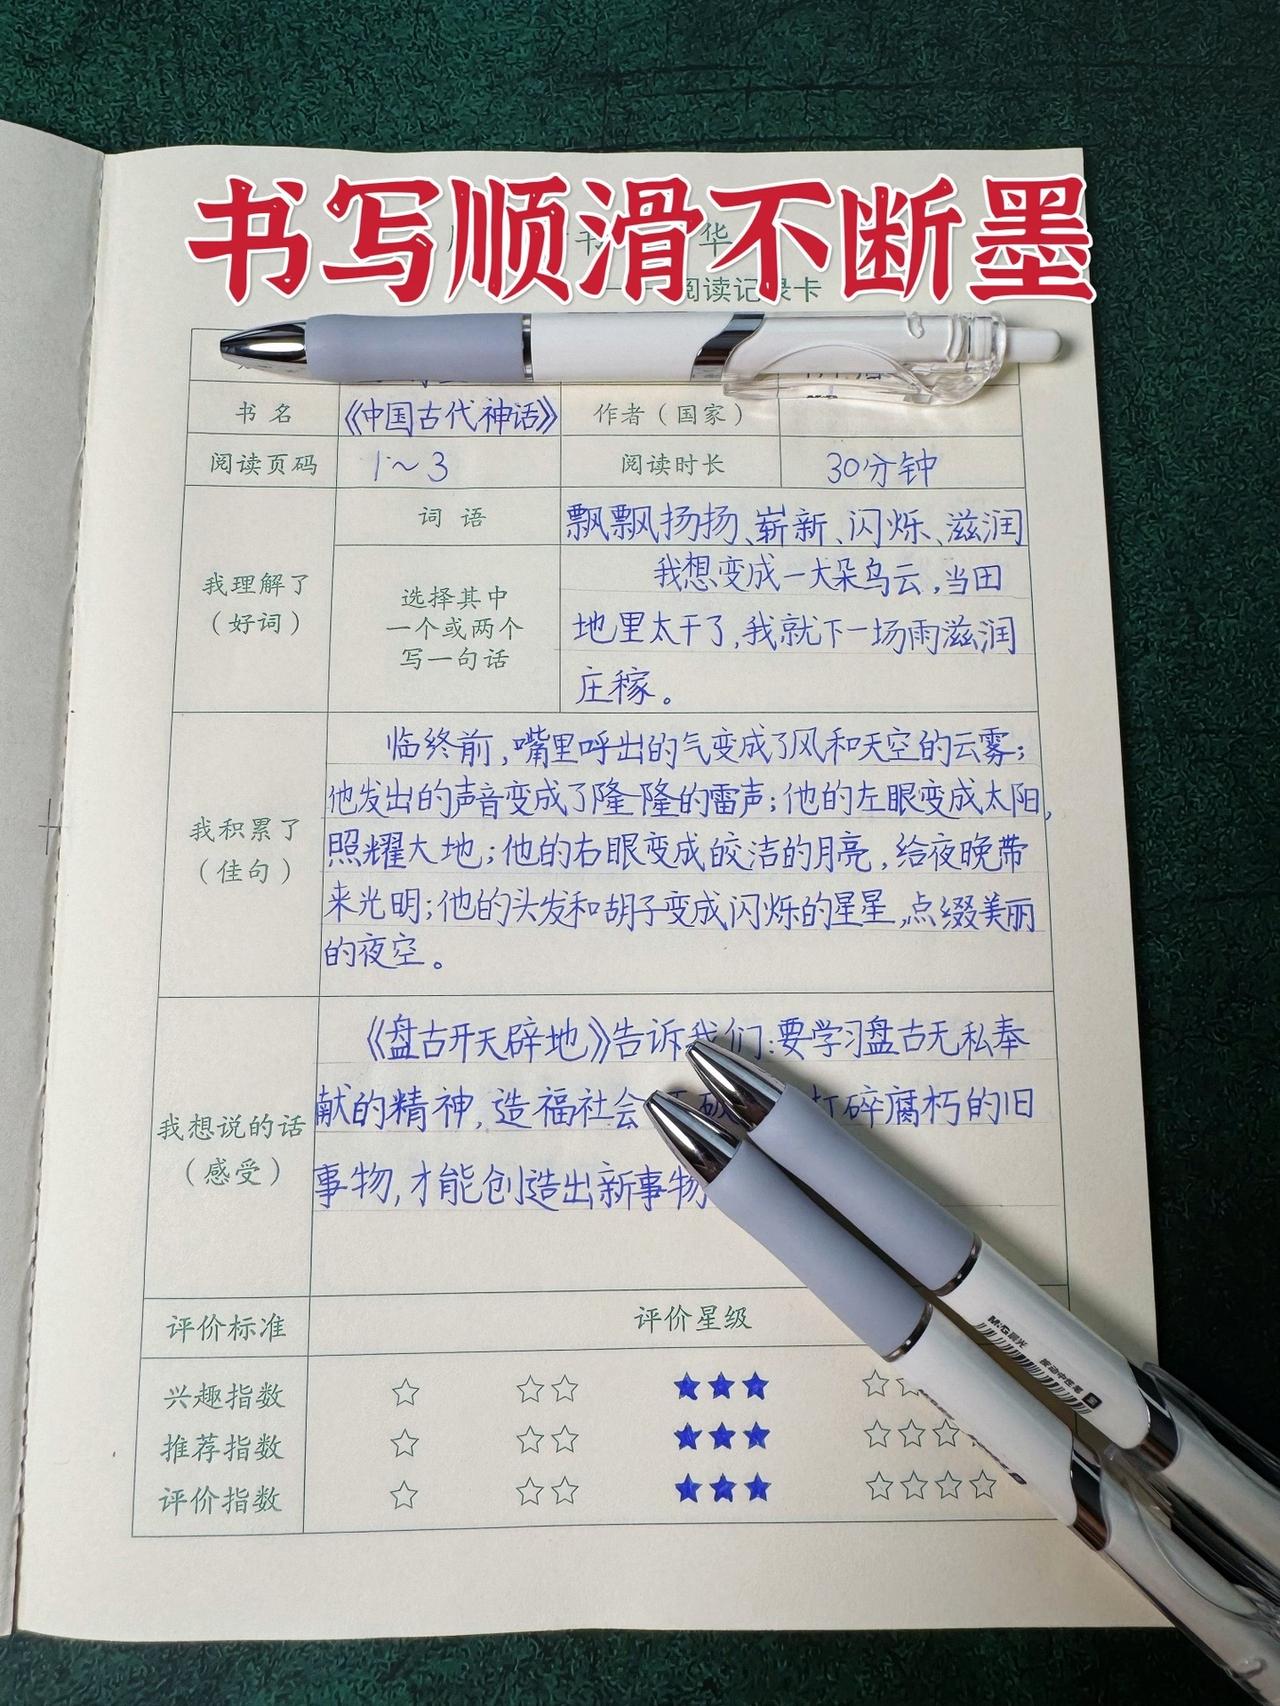 书写顺滑不断墨
华
阅读记录卡
书名 《中国古代神话》 作者（国家）
阅读页码 1～3 阅读时长 30分钟
词语 飘飘扬扬、崭新、闪烁、滋润
我理解了
（好词）
选择其中
一个或两个
写一句话
我想变成一大朵乌云，当田
地里太干了，我就下一场雨滋润
庄稼。
我积累了
（佳句）
临终前，嘴里呼出的气变成了风和天空的云雾；
他发出的声音变成了隆隆的雷声；他的左眼变成太阳，
照耀大地；他的右眼变成皎洁的月亮，给夜晚带
来光明；他的头发和胡子变成闪烁的星星，点缀美丽
的夜空。
我想说的话
（感受）
《盘古开天辟地》告诉我们：要学习盘古无私奉
献的精神，造福社会 打碎腐朽的旧
事物，才能创造出新事物
评价标准 评价星级
兴趣指数
推荐指数
评价指数
M&G晨光 按动中性笔